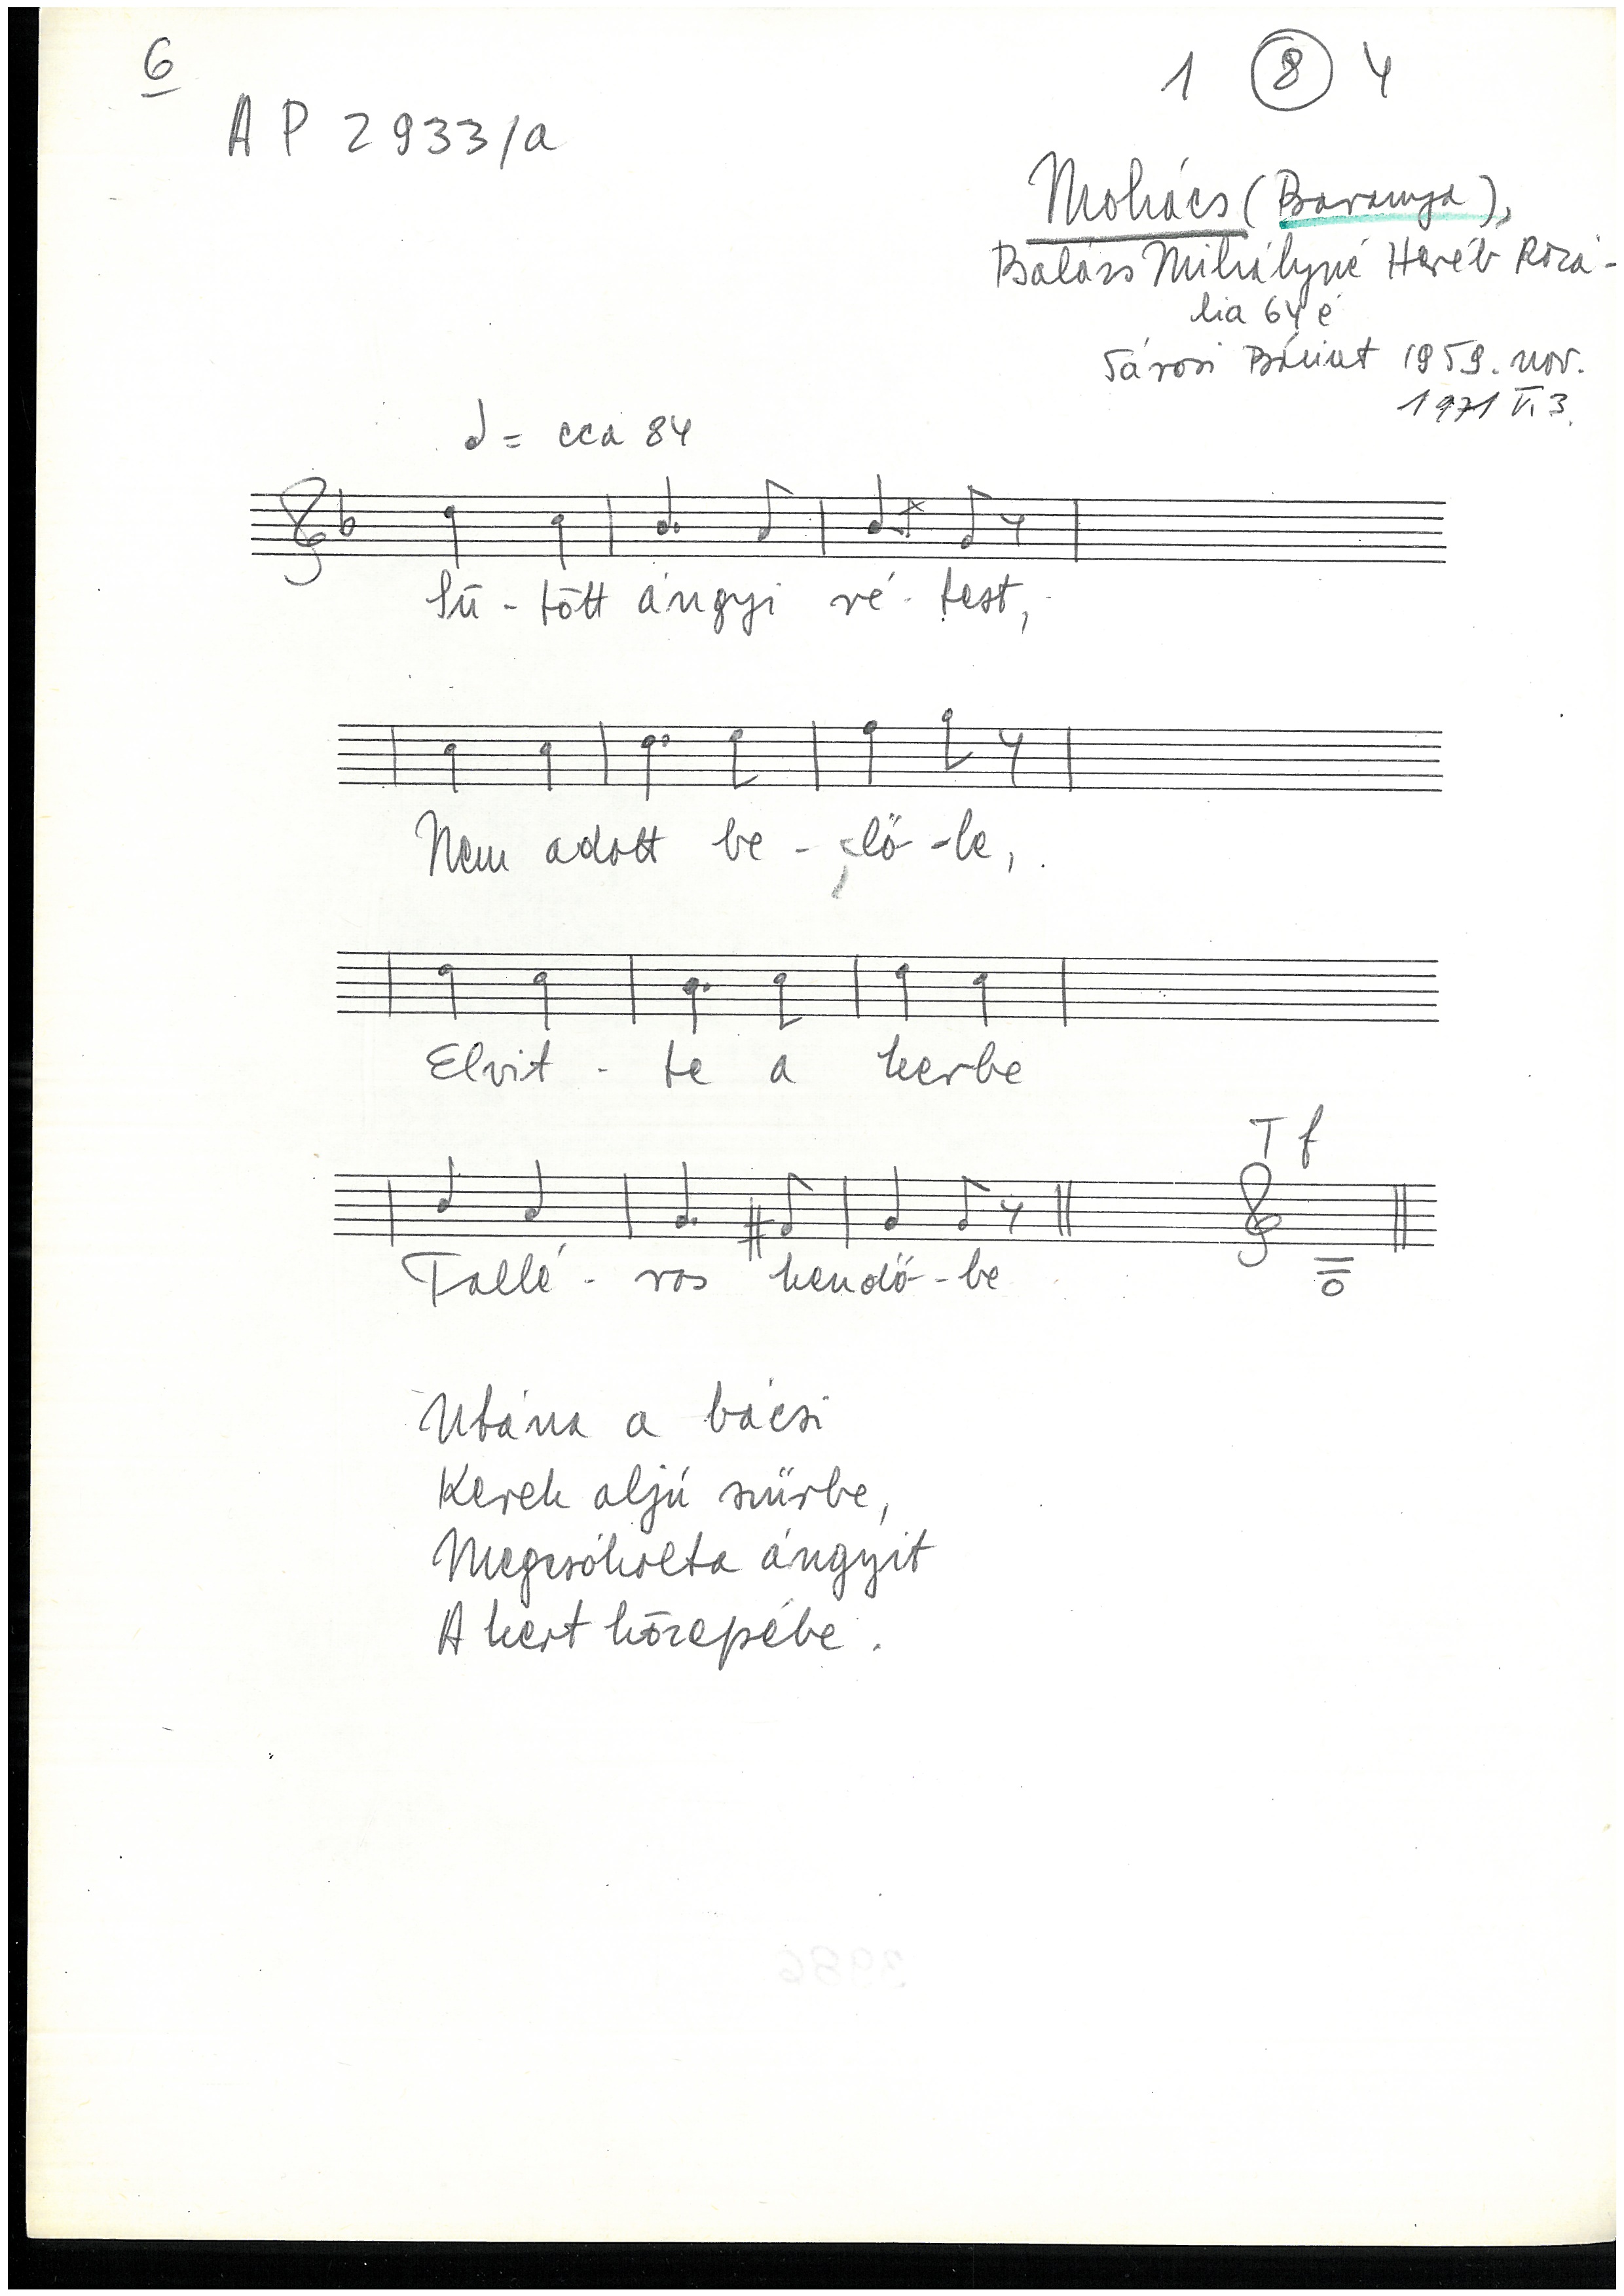 6
1 8 4
AP 2933/a
Mohács (Baranya),
Balázs Mihályné Heréb Rozá-
lia 64 é
Sárosi Bálint 1959. nov.
1971 VI. 3.
= cca 84
Sü - tött ángyi ré - test,
Nem adott be - lő - le,
Elvit - te a kerbe
T f
Tallé - ros kendő - be
Utána a bácsi
Kerek aljú szűrbe,
Megcsókolta ángyit
A kert közepébe.